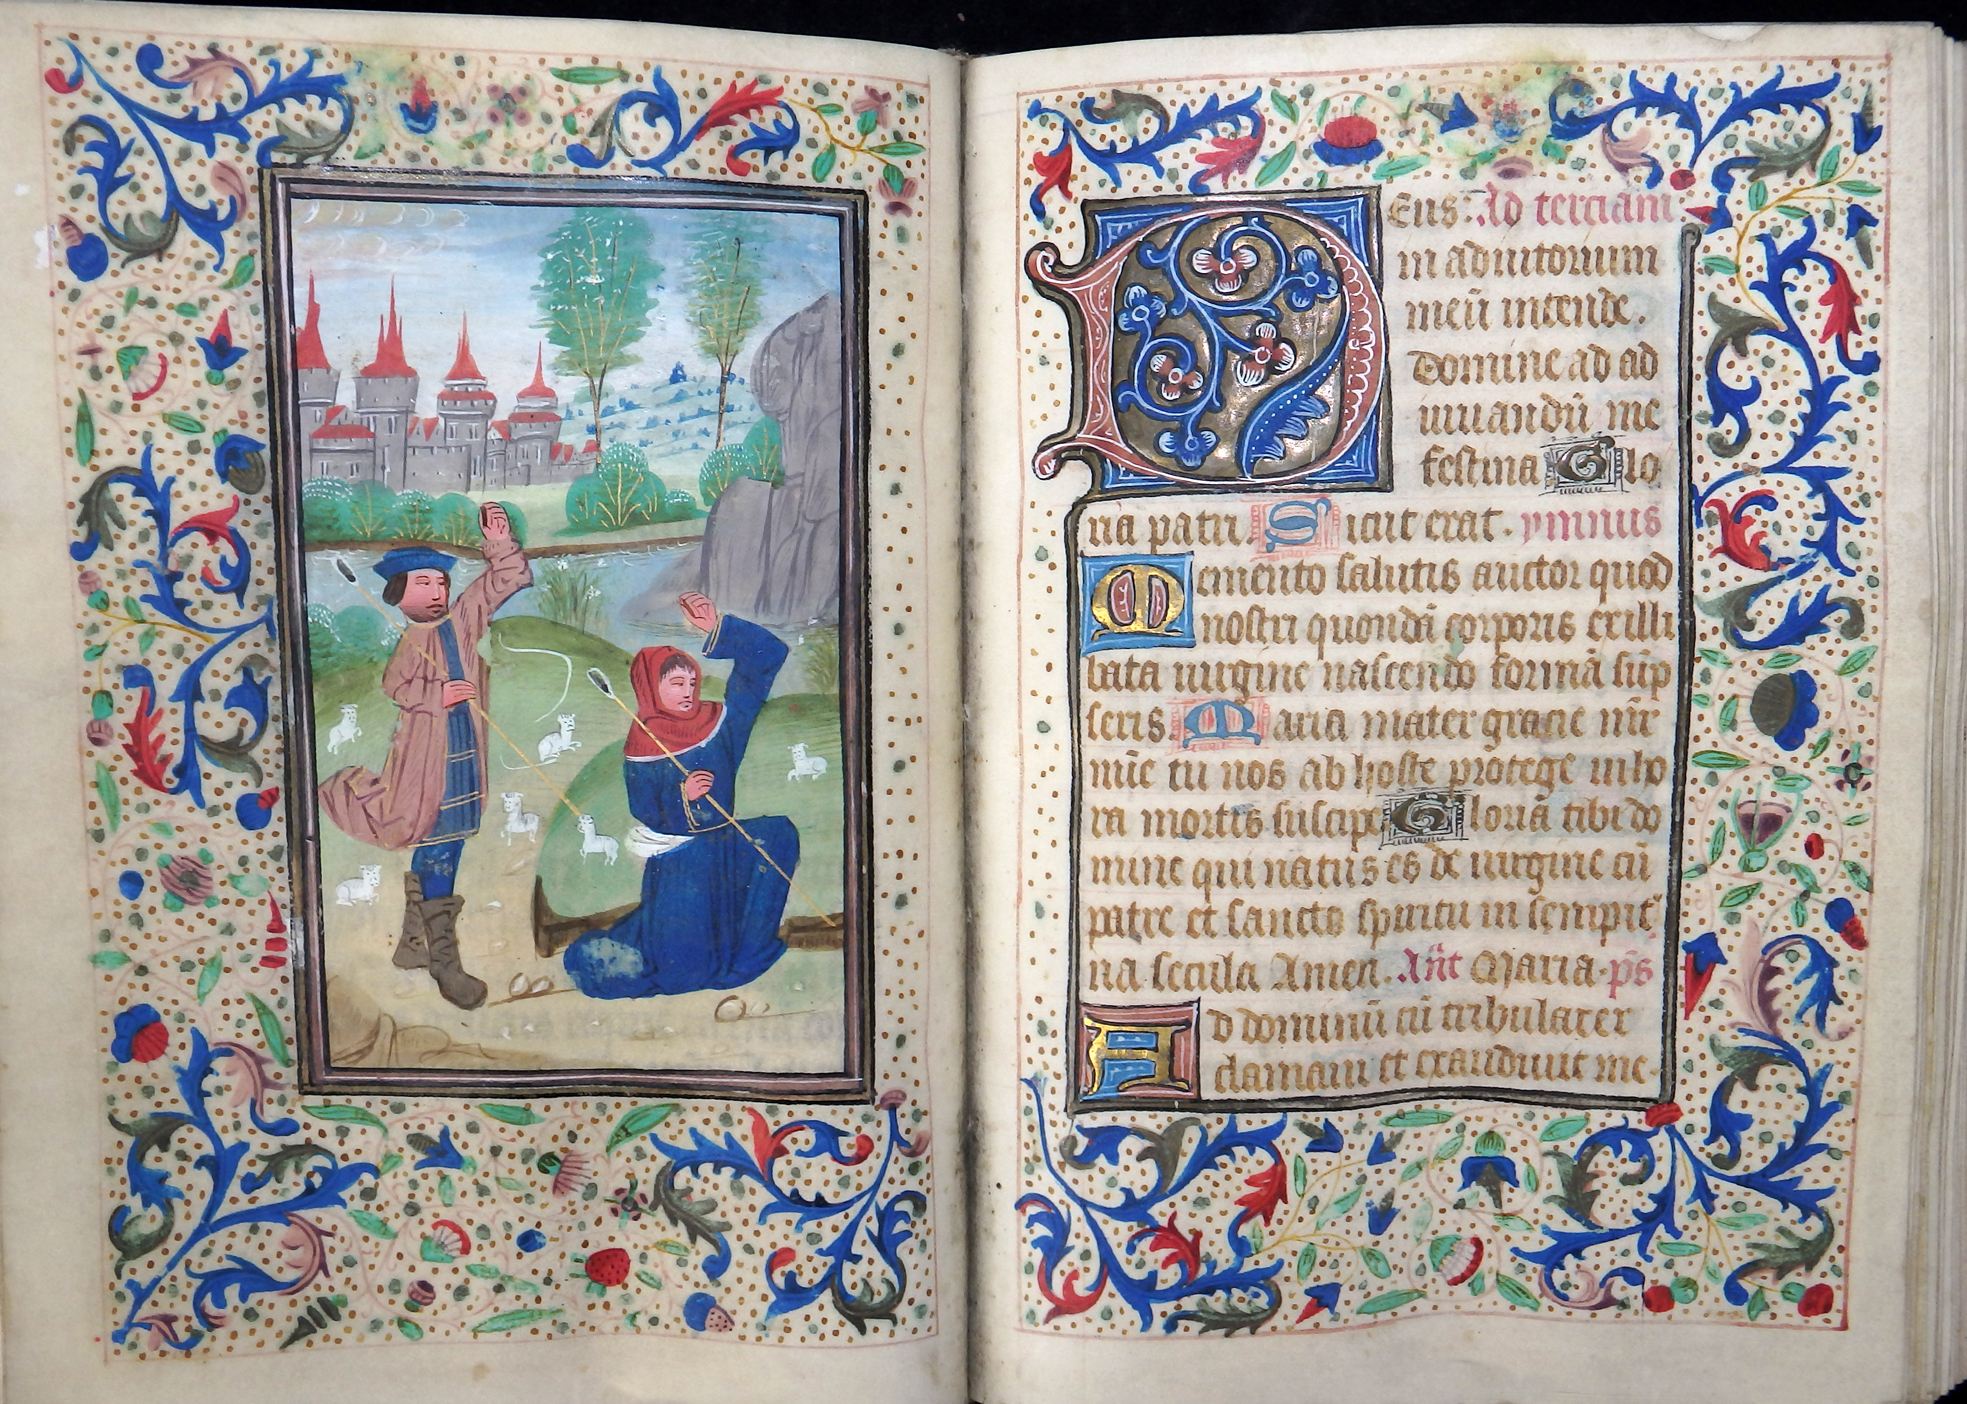 Deus. Ad terciam
in adiutorium
meū intende.
Domine ad ad
iuuandū me
festina Glo
ria patri Sicut erat. ymnus
Memento salutis auctor quod
nostri quondā corporis exilli
bata uirgine nascendo formā sūp
seris Maria mater gracie mr̄e
mīe tu nos ab hoste protege in ho
ra mortis suscipe Gloria tibi do
mine qui natus es de uirgine cū
patre et sancto spiritu in sempit̾
na secula Amen. Añt Maria. p̄s
Ad dominū cū tribularer
clamaui et exaudiuit me.